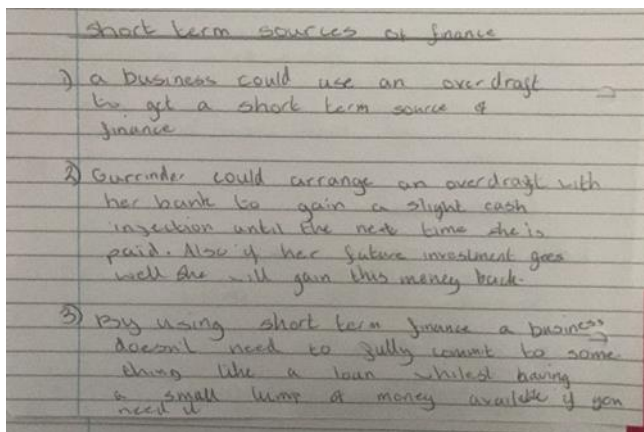 short term sources of finance
1) a business could use an overdraft
to get a short term source of
finance
2) Gurrinder could arrange an overdraft with
her bank to gain a slight cash
injection until the next time she is
paid. Also if her future investment goes
well she will gain this money back.
3) By using short term finance a business
doesn't need to fully commit to some
thing like a loan whilest having
a small lump of money available if you
need it